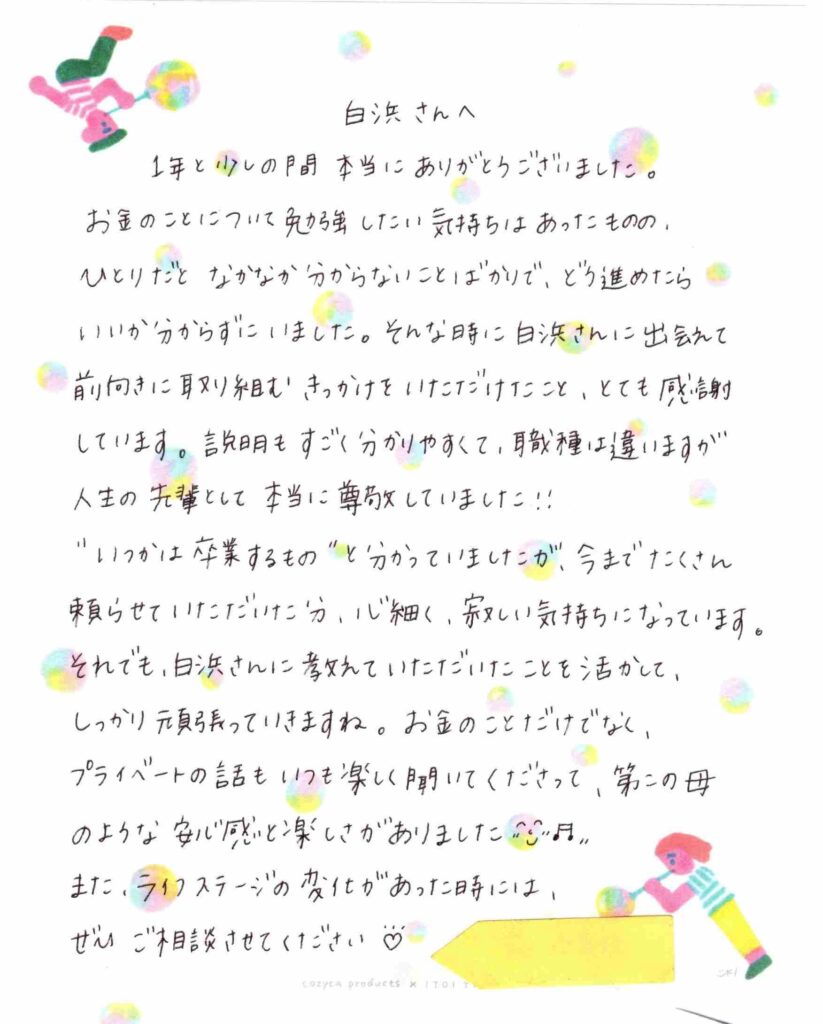 白浜さんへ
1年と少しの間 本当にありがとうございました。
お金のことについて勉強したい気持ちはあったものの、
ひとりだと なかなか分からないことばかりで、どう進めたら
いいか分からずにいました。そんな時に白浜さんに出会えて
前向きに取り組む きっかけをいただけたこと、とても感謝
しています。説明もすごく分かりやすくて、職種は違いますが
人生の先輩として 本当に尊敬していました!!
"いつかは卒業するもの"と分かっていましたが、今までたくさん
頼らせていただいた分、心細く、寂しい気持ちになっています。
それでも、白浜さんに教えていただいたことを活かして、
しっかり頑張っていきますね。お金のことだけでなく、
プライベートの話もいつも楽しく聞いてくださって、第二の母
のような安心感と楽しさがありました♬
また、ライフステージの変化があった時には、
ぜひ ご相談させてください
cozyca products × ITOI